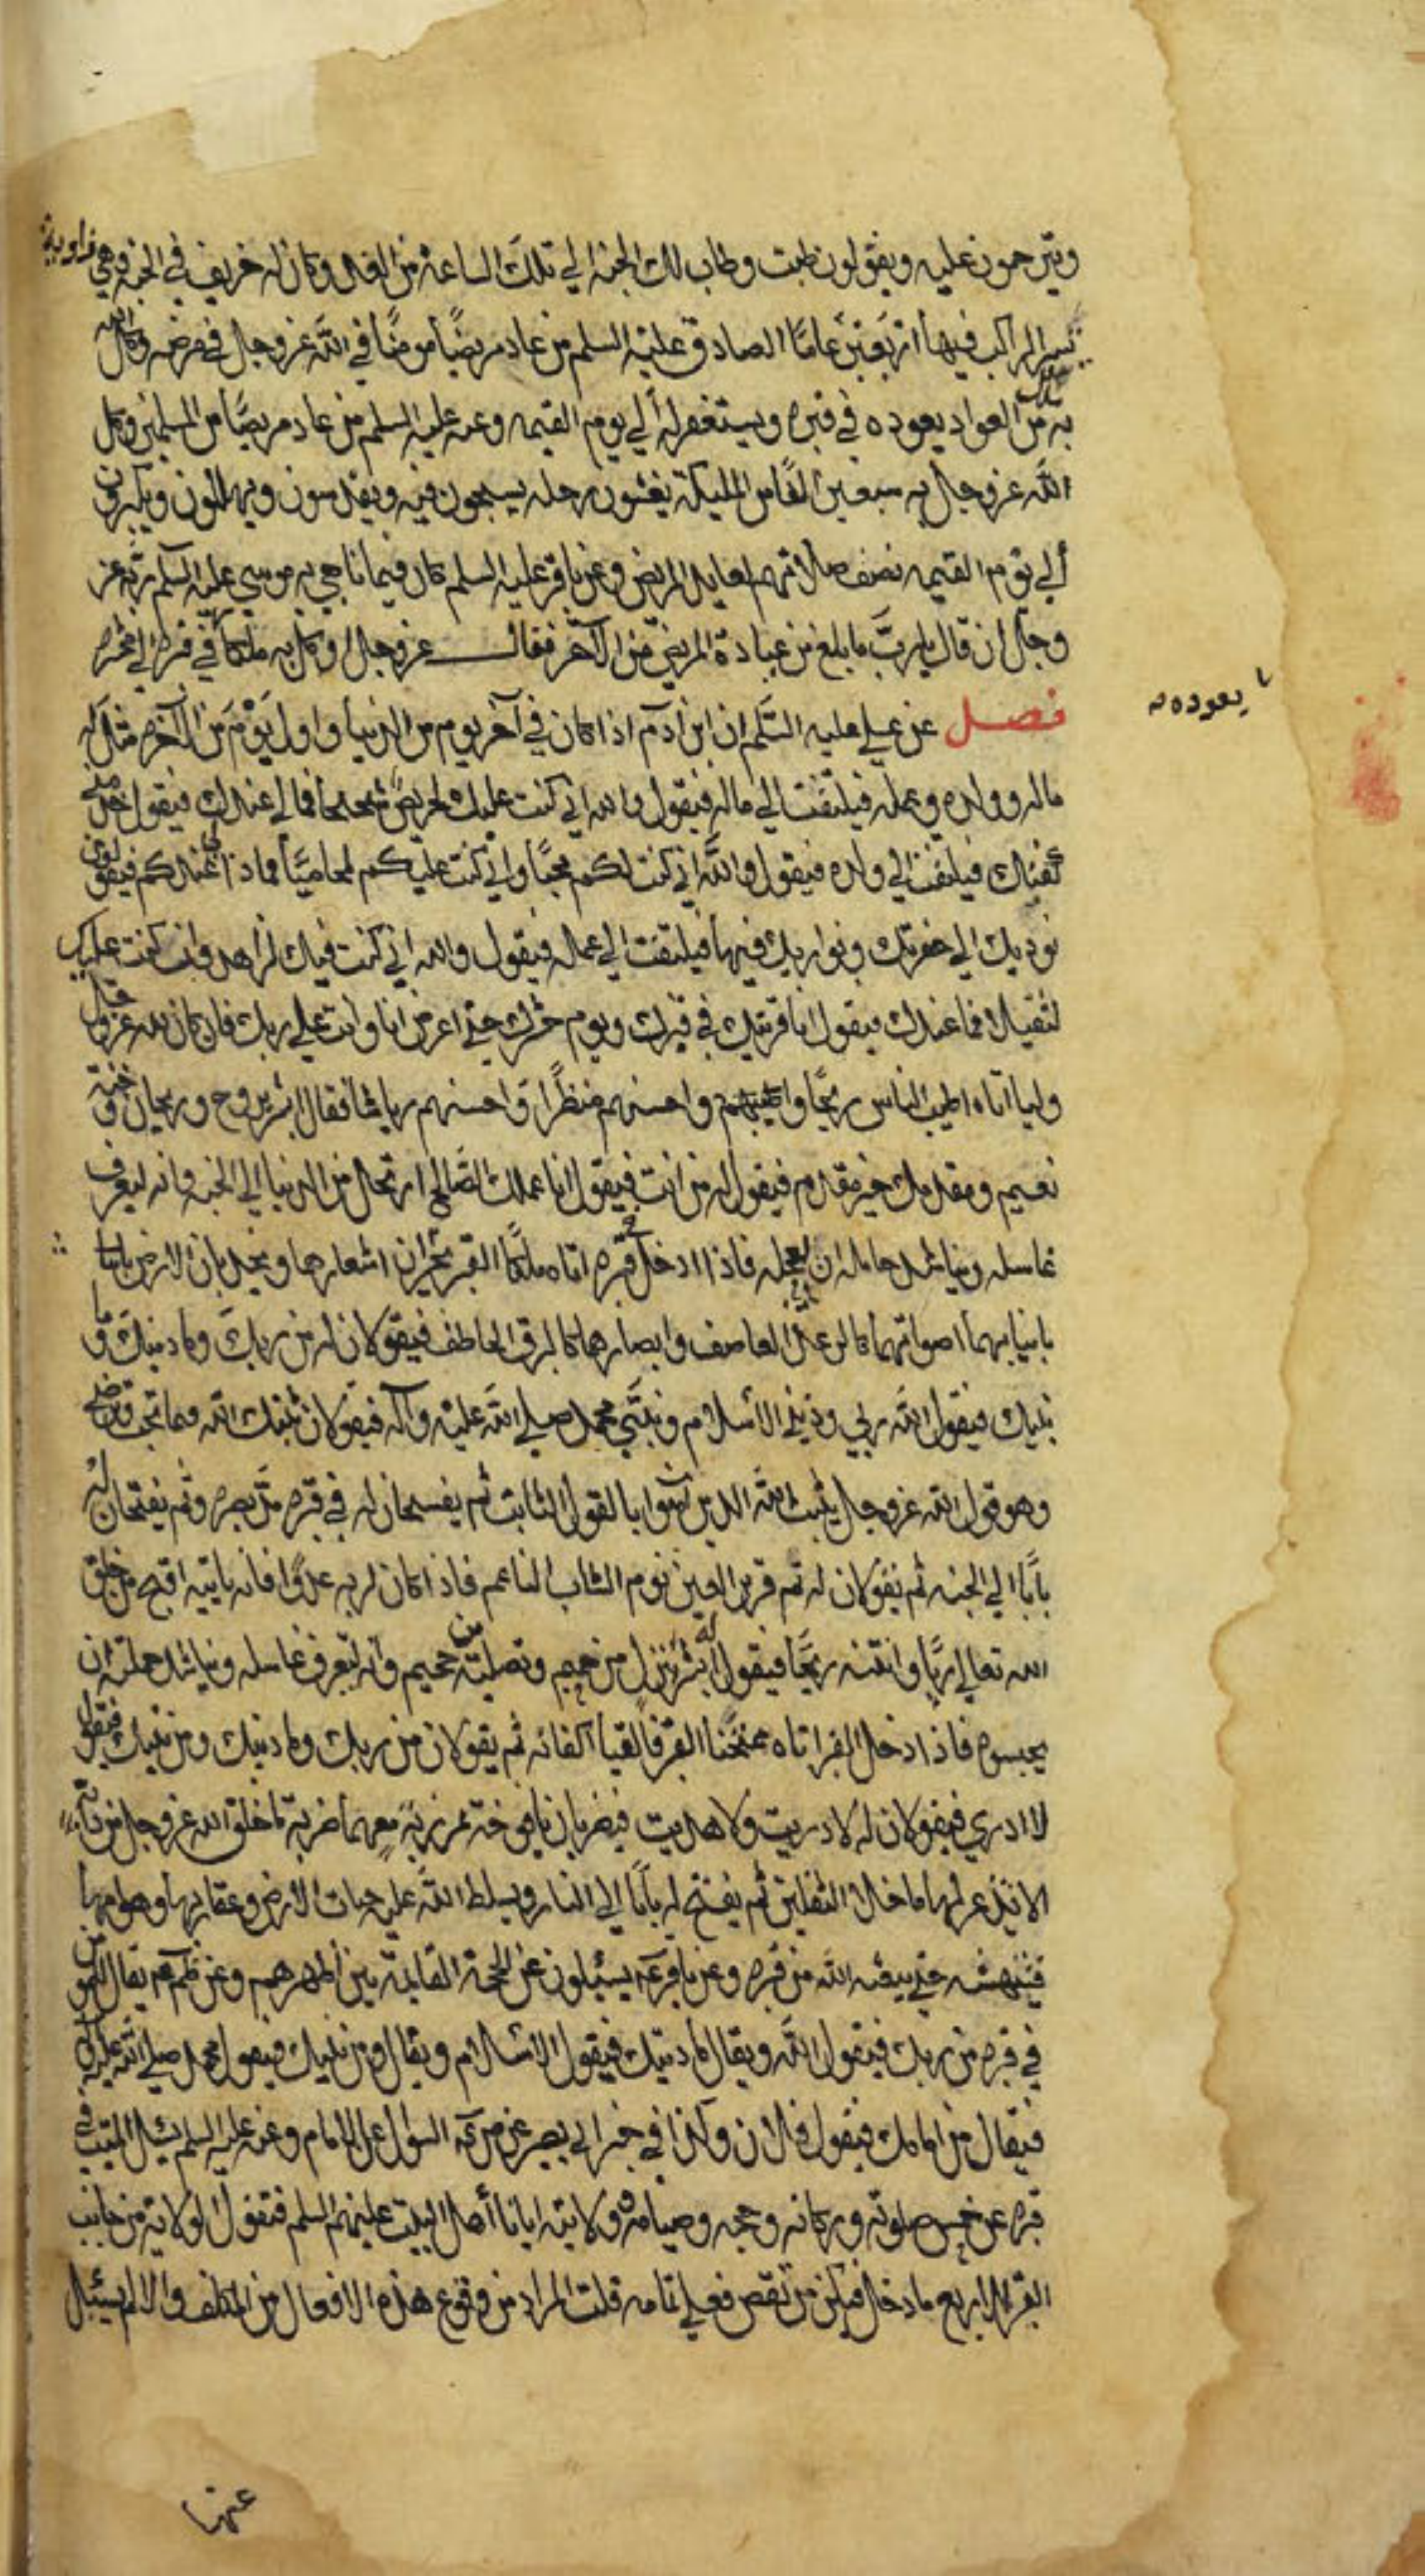 ويترحمون عليه ويقولون طبت وطاب لك الجنة الي تلك الساعة من الغد وكان له خريف في الجنة وهي زاوية
يسير الراكب فيها اربعين عاما الصادق عليه السلم من عاد مريضا مومنا في الله عز وجل في مرضه وكل الله
به ملكا من العواد يعوده في قبره ويستغفر له الي يوم القيمه وعنه عليه السلم من عاد مريضا من المسلمين وكل
الله عز وجل به سبعين الفا من المليكة يغشون رحله يسبحون فيه ويقدسون ويهللون ويكبرون
الي يوم القيمه نصف صلاتهم لعايد المريض وعن باقر عليه السلم كان فيما ناجي به موسي عليه السلم ربه عز
وجل ان قال يا رب ما بلغ من عيادة المريض من الاجر فقال عز وجل اوكل به ملكا يعوده في قبره الي محشره
فصل عن علي عليه السلم ان ابن آدم اذا كان في آخر يوم من الدنيا واول يوم من الآخره مثل له
ماله وولده وعمله فيلتفت الي ماله فيقول والله اني كنت عليك لحريص شحيحا فما لي عندك فيقول خذ مني
كفنك فيلتفت الي ولده فيقول والله اني كنت لكم محبا واني كنت عليكم لمحاميا فماذا لي عندكم فيقولون
نوديك الي حفرتك ونواريك فيها فيلتفت الي عمله فيقول والله اني كنت فيك لزاهد وان كنت علي
لثقيلا فما عندك فيقول انا قرينك في قبرك ويوم حشرك حتي اعرض انا وانت علي ربك فان كان لله عز وجل
وليا اتاه اطيب الناس ريحا واحسنهم منظرا واحسنهم رياشا فقال ابشر بروح وريحان وجنة
نعيم ومقدمك خير مقدم فيقول له من انت فيقول انا عملك الصالح ارتحل من الدنيا الي الجنه وانه ليعرف
غاسله ويناشد حامله ان يعجله فاذا ادخل قبره اتاه ملكا القبر يجران اشعارهما ويخدان الارض
بانيابهما اصواتهما كالرعد العاصف وابصارهما كالبرق الخاطف فيقولان له من ربك وما دينك وما
نبيك فيقول الله ربي وديني الاسلام ونبيي محمد صلي الله عليه وآله فيقولان ثبتك الله فيما تحب وترضي
وهو قول الله عز وجل يثبت الله الذين آمنوا بالقول الثابت ثم يفسحان له في قبره مد بصره وثم يفتحان له
بابا الي الجنه ثم يقولان له نم قرير العين نوم الشاب الناعم فاذا كان لربه عدوا فانه ياتيه اقبح من خلق
الله تعالي زيا وانتنه ريحا فيقول له ابشر بنزل من حميم وتصلية جحيم وانه ليعرف غاسله ويناشد حملته ان
يحبسوه فاذا دخل القبر اتاه ممتحنا القبر فالقيا اكفانه ثم يقولان من ربك وما دينك ومن نبيك فيقول
لا ادري فيقولان له لا دريت ولا هديت فيضربان يافوخه بمرزبة معهما ضربة ما خلق الله عز وجل من دابة
الا تذعر لها ما خلا الثقلين ثم يفتح له بابا الي النار ويسلط الله عليه حيات الارض وعقاربها وهوامها
فتنهشه حتي يبعثه الله من قبره وعن باقر ع يسيلون عن الحجة القايمة بين اظهرهم وعن يقال للمومن
في قبره من ربك فيقول الله ويقال ما دينك فيقول الاسلام ويقال ومن نبيك فيقول محمد صلي الله عليه وآله
فيقال من امامك فيقول فلان وكذا في خبر ابي بصير عن السوال عن الامام وعنه عليه السلم يسال الميت في
قبره عن خمس صلوته وزكاته وحجه وصيامه وولايته ايانا اهل البيت عليهم السلم فتقول الولاية من جانب
القبر للاربع ما دخل فيكن من نقص فعلي تمامه قلت المراد من وقوع هذه الافعال من المكلف والا لم يسيل
يعوده
عنها